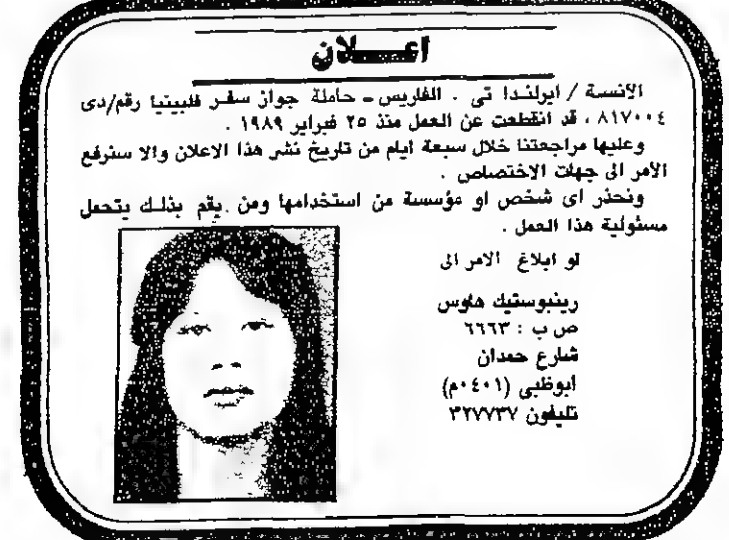 اعـــلان
الآنسة / ايرلندا تى . الفاريس ـ حاملة جواز سفر فلبينيا رقم/دى
٨١٧٠٠٤ ، قد انقطعت عن العمل منذ ٢٥ فبراير ١٩٨٩ .
وعليها مراجعتنا خلال سبعة ايام من تاريخ نشر هذا الاعلان والا سنرفع
الأمر الى جهات الاختصاص .
ونحذر اى شخص او مؤسسة من استخدامها ومن يقم بذلك يتحمل
مسئولية هذا العمل .
لو ابلاغ الامر الى
رينبوستيك هاوس
ص ب : ٦٦٦٣
شارع حمدان
ابوظبى (٠٤٠١م)
تليفون ٣٢٧٧٣٧